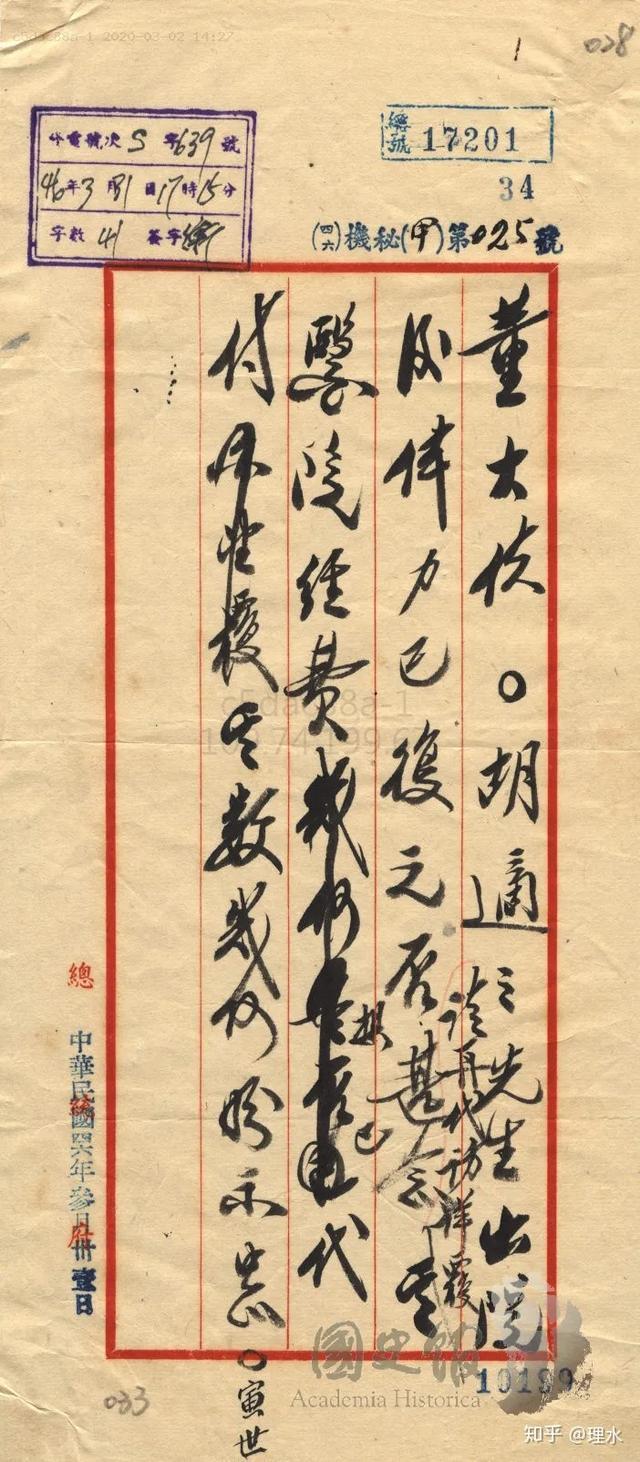 c5dac88a-1 2020-03-02 14:27
1
028
電號次 S 字639號
46年3月31日17時15分
字數 41 簽字
編號 17201
34
(四六)機秘(甲)第025號
董大使○胡適之先生出院
請再代訪詳覆
後体力已復元否甚念其
醫院經費幾何
想已
代
付
覆其數幾何盼示
○寅世
總統府
中華民國四六年參月卅壹日
c5dac88a-1
國史館
Academia Historica
10199
033
知乎 @理水